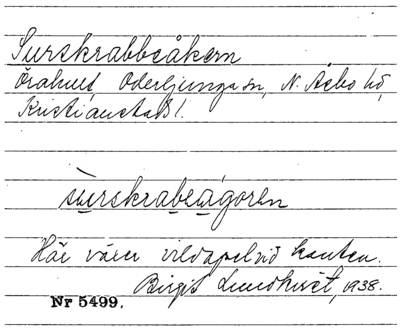 Surskrabbeåkern
Örahult Oderljunga sn, N. Åsbo hd,
Kristianstads l.
sùrskrabeágoren
Här växer vildapel vid kanten.
Birgit Lundkvist, 1938.
Nr 5499.